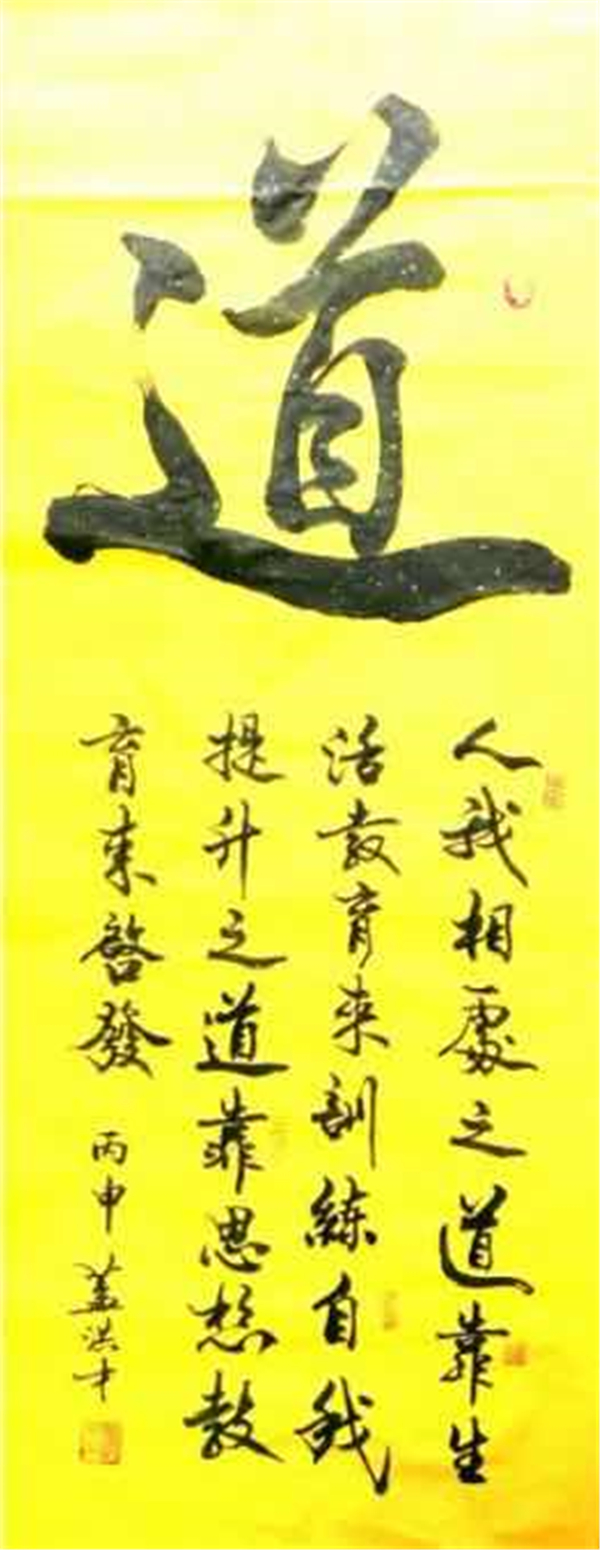 道
人我相處之道靠生
活教育来訓練自我
提升之道靠思想教
育来啓發
丙申 蓋洪才